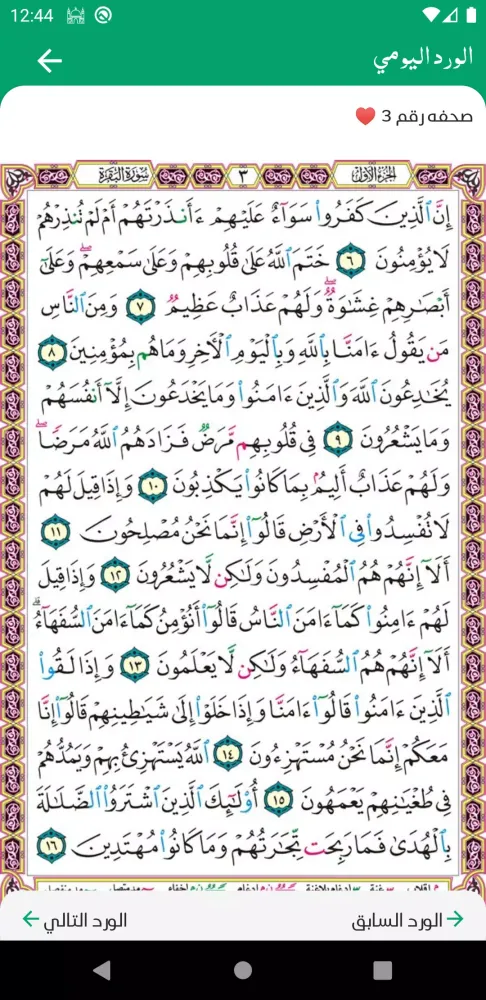 12:44
الورد اليومي
صحفه رقم 3 ❤️
الجزء الأول ٣ سورة البقرة
إِنَّ ٱلَّذِينَ كَفَرُوا۟ سَوَآءٌ عَلَيْهِمْ ءَأَنذَرْتَهُمْ أَمْ لَمْ تُنذِرْهُمْ
لَا يُؤْمِنُونَ ٦ خَتَمَ ٱللَّهُ عَلَىٰ قُلُوبِهِمْ وَعَلَىٰ سَمْعِهِمْ ۖ وَعَلَىٰٓ
أَبْصَـٰرِهِمْ غِشَـٰوَةٌ ۖ وَلَهُمْ عَذَابٌ عَظِيمٌ ٧ وَمِنَ ٱلنَّاسِ
مَن يَقُولُ ءَامَنَّا بِٱللَّهِ وَبِٱلْيَوْمِ ٱلْـَٔاخِرِ وَمَا هُم بِمُؤْمِنِينَ ٨
يُخَـٰدِعُونَ ٱللَّهَ وَٱلَّذِينَ ءَامَنُوا۟ وَمَا يَخْدَعُونَ إِلَّآ أَنفُسَهُمْ
وَمَا يَشْعُرُونَ ٩ فِى قُلُوبِهِم مَّرَضٌ فَزَادَهُمُ ٱللَّهُ مَرَضًا ۖ
وَلَهُمْ عَذَابٌ أَلِيمٌۢ بِمَا كَانُوا۟ يَكْذِبُونَ ١٠ وَإِذَا قِيلَ لَهُمْ
لَا تُفْسِدُوا۟ فِى ٱلْأَرْضِ قَالُوٓا۟ إِنَّمَا نَحْنُ مُصْلِحُونَ ١١
أَلَآ إِنَّهُمْ هُمُ ٱلْمُفْسِدُونَ وَلَـٰكِن لَّا يَشْعُرُونَ ١٢ وَإِذَا قِيلَ
لَهُمْ ءَامِنُوا۟ كَمَآ ءَامَنَ ٱلنَّاسُ قَالُوٓا۟ أَنُؤْمِنُ كَمَآ ءَامَنَ ٱلسُّفَهَآءُ ۗ
أَلَآ إِنَّهُمْ هُمُ ٱلسُّفَهَآءُ وَلَـٰكِن لَّا يَعْلَمُونَ ١٣ وَإِذَا لَقُوا۟
ٱلَّذِينَ ءَامَنُوا۟ قَالُوٓا۟ ءَامَنَّا وَإِذَا خَلَوْا۟ إِلَىٰ شَيَـٰطِينِهِمْ قَالُوٓا۟ إِنَّا
مَعَكُمْ إِنَّمَا نَحْنُ مُسْتَهْزِءُونَ ١٤ ٱللَّهُ يَسْتَهْزِئُ بِهِمْ وَيَمُدُّهُمْ
فِى طُغْيَـٰنِهِمْ يَعْمَهُونَ ١٥ أُو۟لَـٰٓئِكَ ٱلَّذِينَ ٱشْتَرَوُا۟ ٱلضَّلَـٰلَةَ
بِٱلْهُدَىٰ فَمَا رَبِحَت تِّجَـٰرَتُهُمْ وَمَا كَانُوا۟ مُهْتَدِينَ ١٦
الورد السابق
الورد التالي